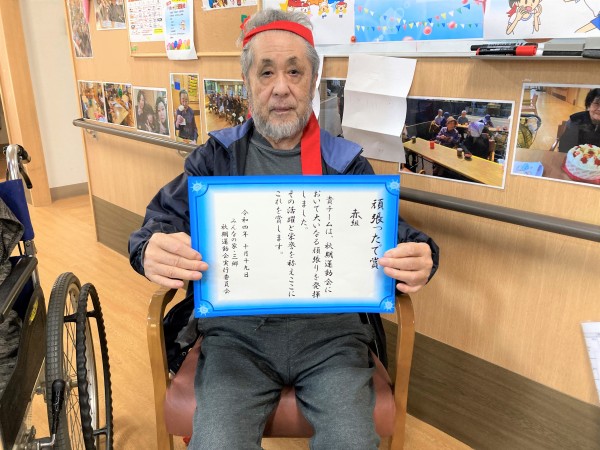 頑張ったで賞
赤組
貴チームは、秋期運動会に
おいて大いなる頑張りを発揮
しました。
その活躍と栄誉を称えここに
これを賞します。
令和四年 十月十九日
みんなの家・三郷
秋期運動会実行委員会